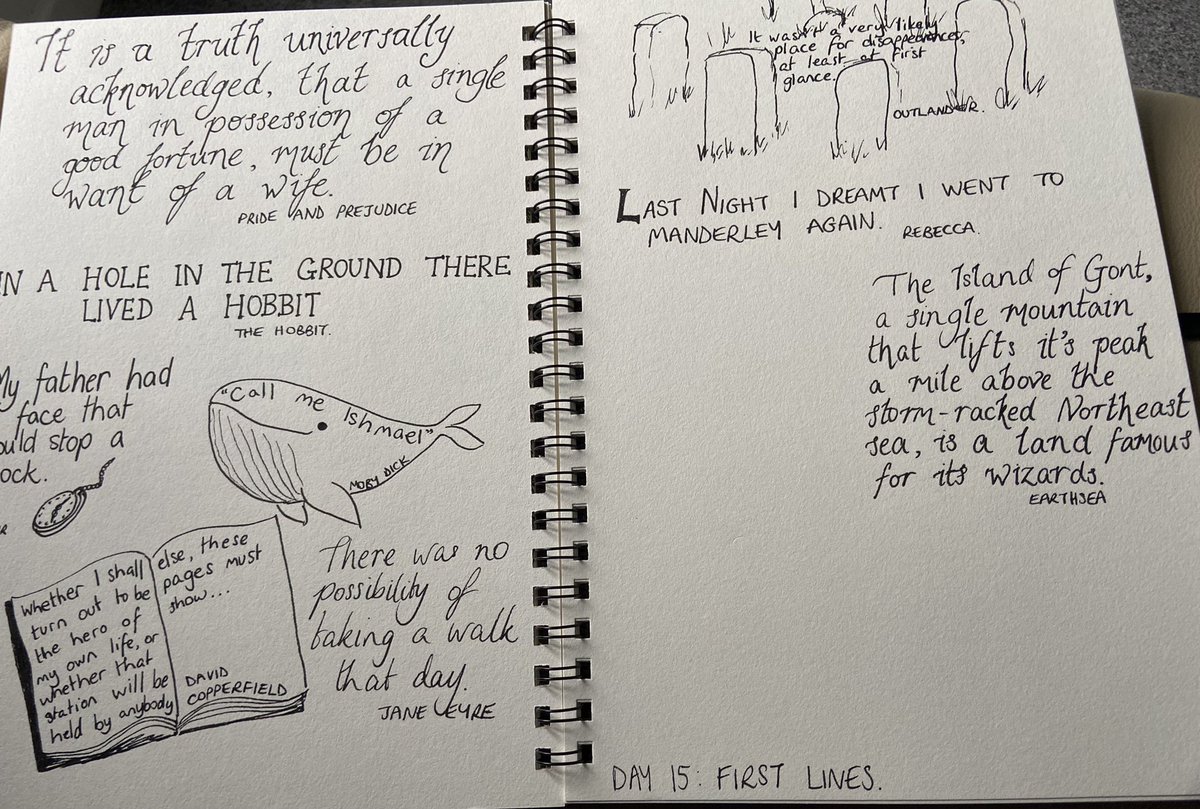 It is a truth universally
acknowledged, that a single
man in possession of a
good fortune, must be in
want of a wife.
PRIDE AND PREJUDICE
IN A HOLE IN THE GROUND THERE
LIVED A HOBBIT
THE HOBBIT.
My father had
face that
ould stop a
ock.
R
"Call me Ishmael"
MOBY DICK
whether I shall
turn out to be
the hero of
my own life, or
whether that
station will be
held by anybody
else, these
pages must
show...
DAVID
COPPERFIELD
There was no
possibility of
taking a walk
that day.
JANE EYRE
It wasn't a very likely
place for disappearances,
at least at first
glance.
OUTLANDER.
LAST NIGHT I DREAMT I WENT TO
MANDERLEY AGAIN.
REBECCA.
The Island of Gont,
a single mountain
that lifts it's peak
a mile above the
storm-racked Northeast
sea, is a land famous
for its wizards.
EARTHSEA
DAY 15: FIRST LINES.